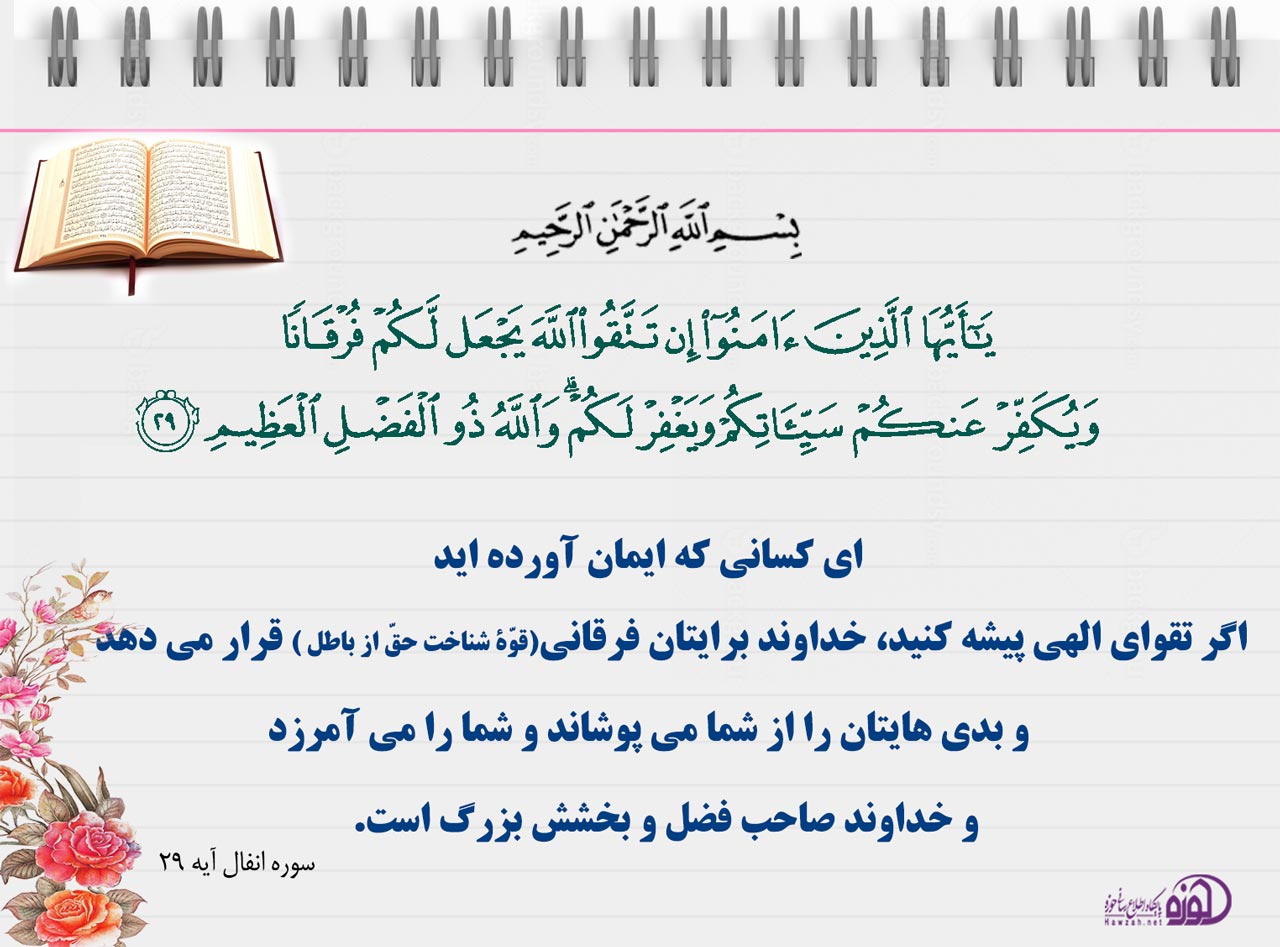 بِسْمِ ٱللَّهِ ٱلرَّحْمَٰنِ ٱلرَّحِيمِ
يَـٰٓأَيُّهَا ٱلَّذِينَ ءَامَنُوٓا۟ إِن تَتَّقُوا۟ ٱللَّهَ يَجْعَل لَّكُمْ فُرْقَانًا
وَيُكَفِّرْ عَنكُمْ سَيِّـَٔاتِكُمْ وَيَغْفِرْ لَكُمْ ۗ وَٱللَّهُ ذُو ٱلْفَضْلِ ٱلْعَظِيمِ ٢٩
ای کسانی که ایمان آورده اید
اگر تقوای الهی پیشه کنید، خداوند برایتان فرقانی(قوّهٔ شناخت حقّ از باطل ) قرار می دهد
و بدی هایتان را از شما می پوشاند و شما را می آمرزد
و خداوند صاحب فضل و بخشش بزرگ است.
سوره انفال آیه ۲۹
حوزه پایگاه اطلاع رسانی حوزه
Hawzah.net